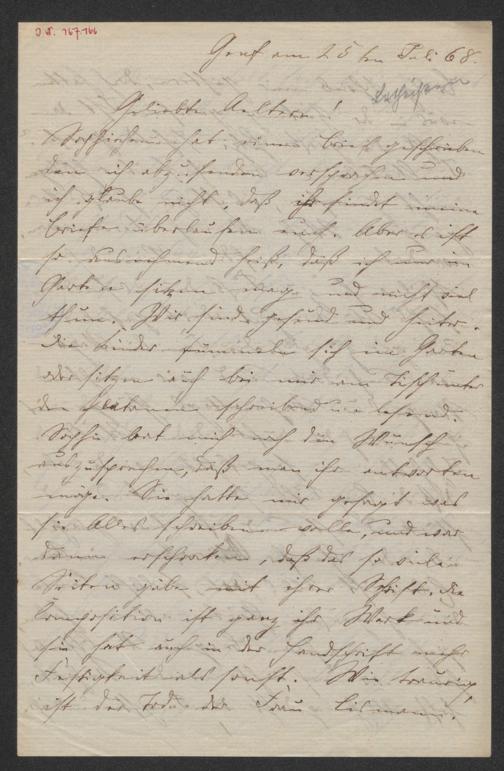 Genf am 25ten Juli 68.
Geliebte Aeltern!
Sophiechen hat einen Brief geschrieben
den ich abzusenden versprochen und
ich glaube nicht, daß ihr findet meine
Briefe überlaufen euch. Aber es ist
so ausnehmend heiß, daß ich nur im
Garten sitzen mag und nicht viel
thun. Wir sind gesund und heiter.
Die Kinder tummeln sich im Garten
oder sitzen auch bei mir am Tisch unter
den Platanen schreibend und lesend.
Sophie bat mich noch den Wunsch
auszusprechen, daß man ihr antworten
möge. Sie hatte mir gesagt was
sie Alles schreiben wolle, und war
dann erschrocken, daß das so viele
Seiten gäbe mit ihrer Schrift. Die
Composition ist ganz ihr Werk und
sie hat auch in der Handschrift mehr
Festigkeit als sonst. Wie traurig
ist der Tod der Frau